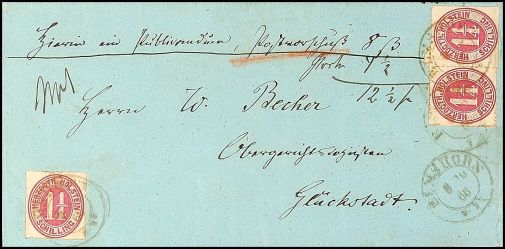 Hierin ein Publicandum Postvorschuß 8 ß
Porto 4 ½
Herrn W. Becher 12 ½ ß
Obergerichts
Glückstadt.
HERZOGTH. HOLSTEIN
1¼
SCHILLING
HERZOGTH. HOLSTEIN
1¼
SCHILLING
HERZOGTH. HOLSTEIN
1¼
SCHILLING
ELMSHORN
66